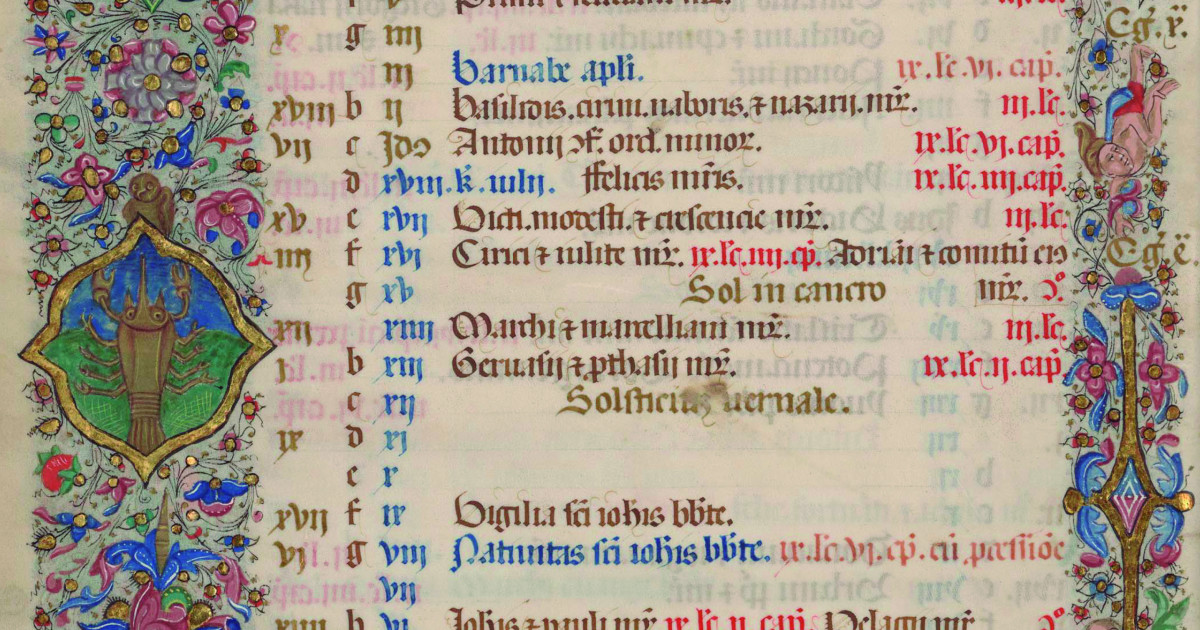 x g iiij
iij barnabe apli. ix. lc. vi. cap.
xviii b ij basilidis. cirini. naboris. ⁊ nazarii. mr̄. iij. lc
vii c Jdꝰ Antonij ɔf. ord. minor. ix. lc. vj. cap.
d xviii. k̄. iulij. ffelicis mr̄is. ix. lc. iiij. cap.
xv e xvij Victi. modesti. ⁊ crescencie mr̄. iij. lc
iiij f xvj Cirici ⁊ iulite mr̄. ix. lc. iiij. cp̄. Adriāi ⁊ comitū eiꝰ
g xv Sol in cancro mr̄. ↄ°.
xii xiiij Marchi ⁊ marcelliani mr̄. iij. lc
j b xiij Geruasij ⁊ ꝓthasij mr̄. ix. lc. ij. cap.
c xij Solsticiū uernale.
ix d xj
e x
xvij f ix Vigilia sc̄i ioh̄is bb̄te.
vj g viij Natiuitas sc̄i ioh̄is bb̄te. ix. lc. vj. cp̄. cū ꝓcessiōe
vij
b vj Joh̄is ⁊ pauli mr̄. ix. lc. ij. cap. Pelagij mr̄. ↄ°